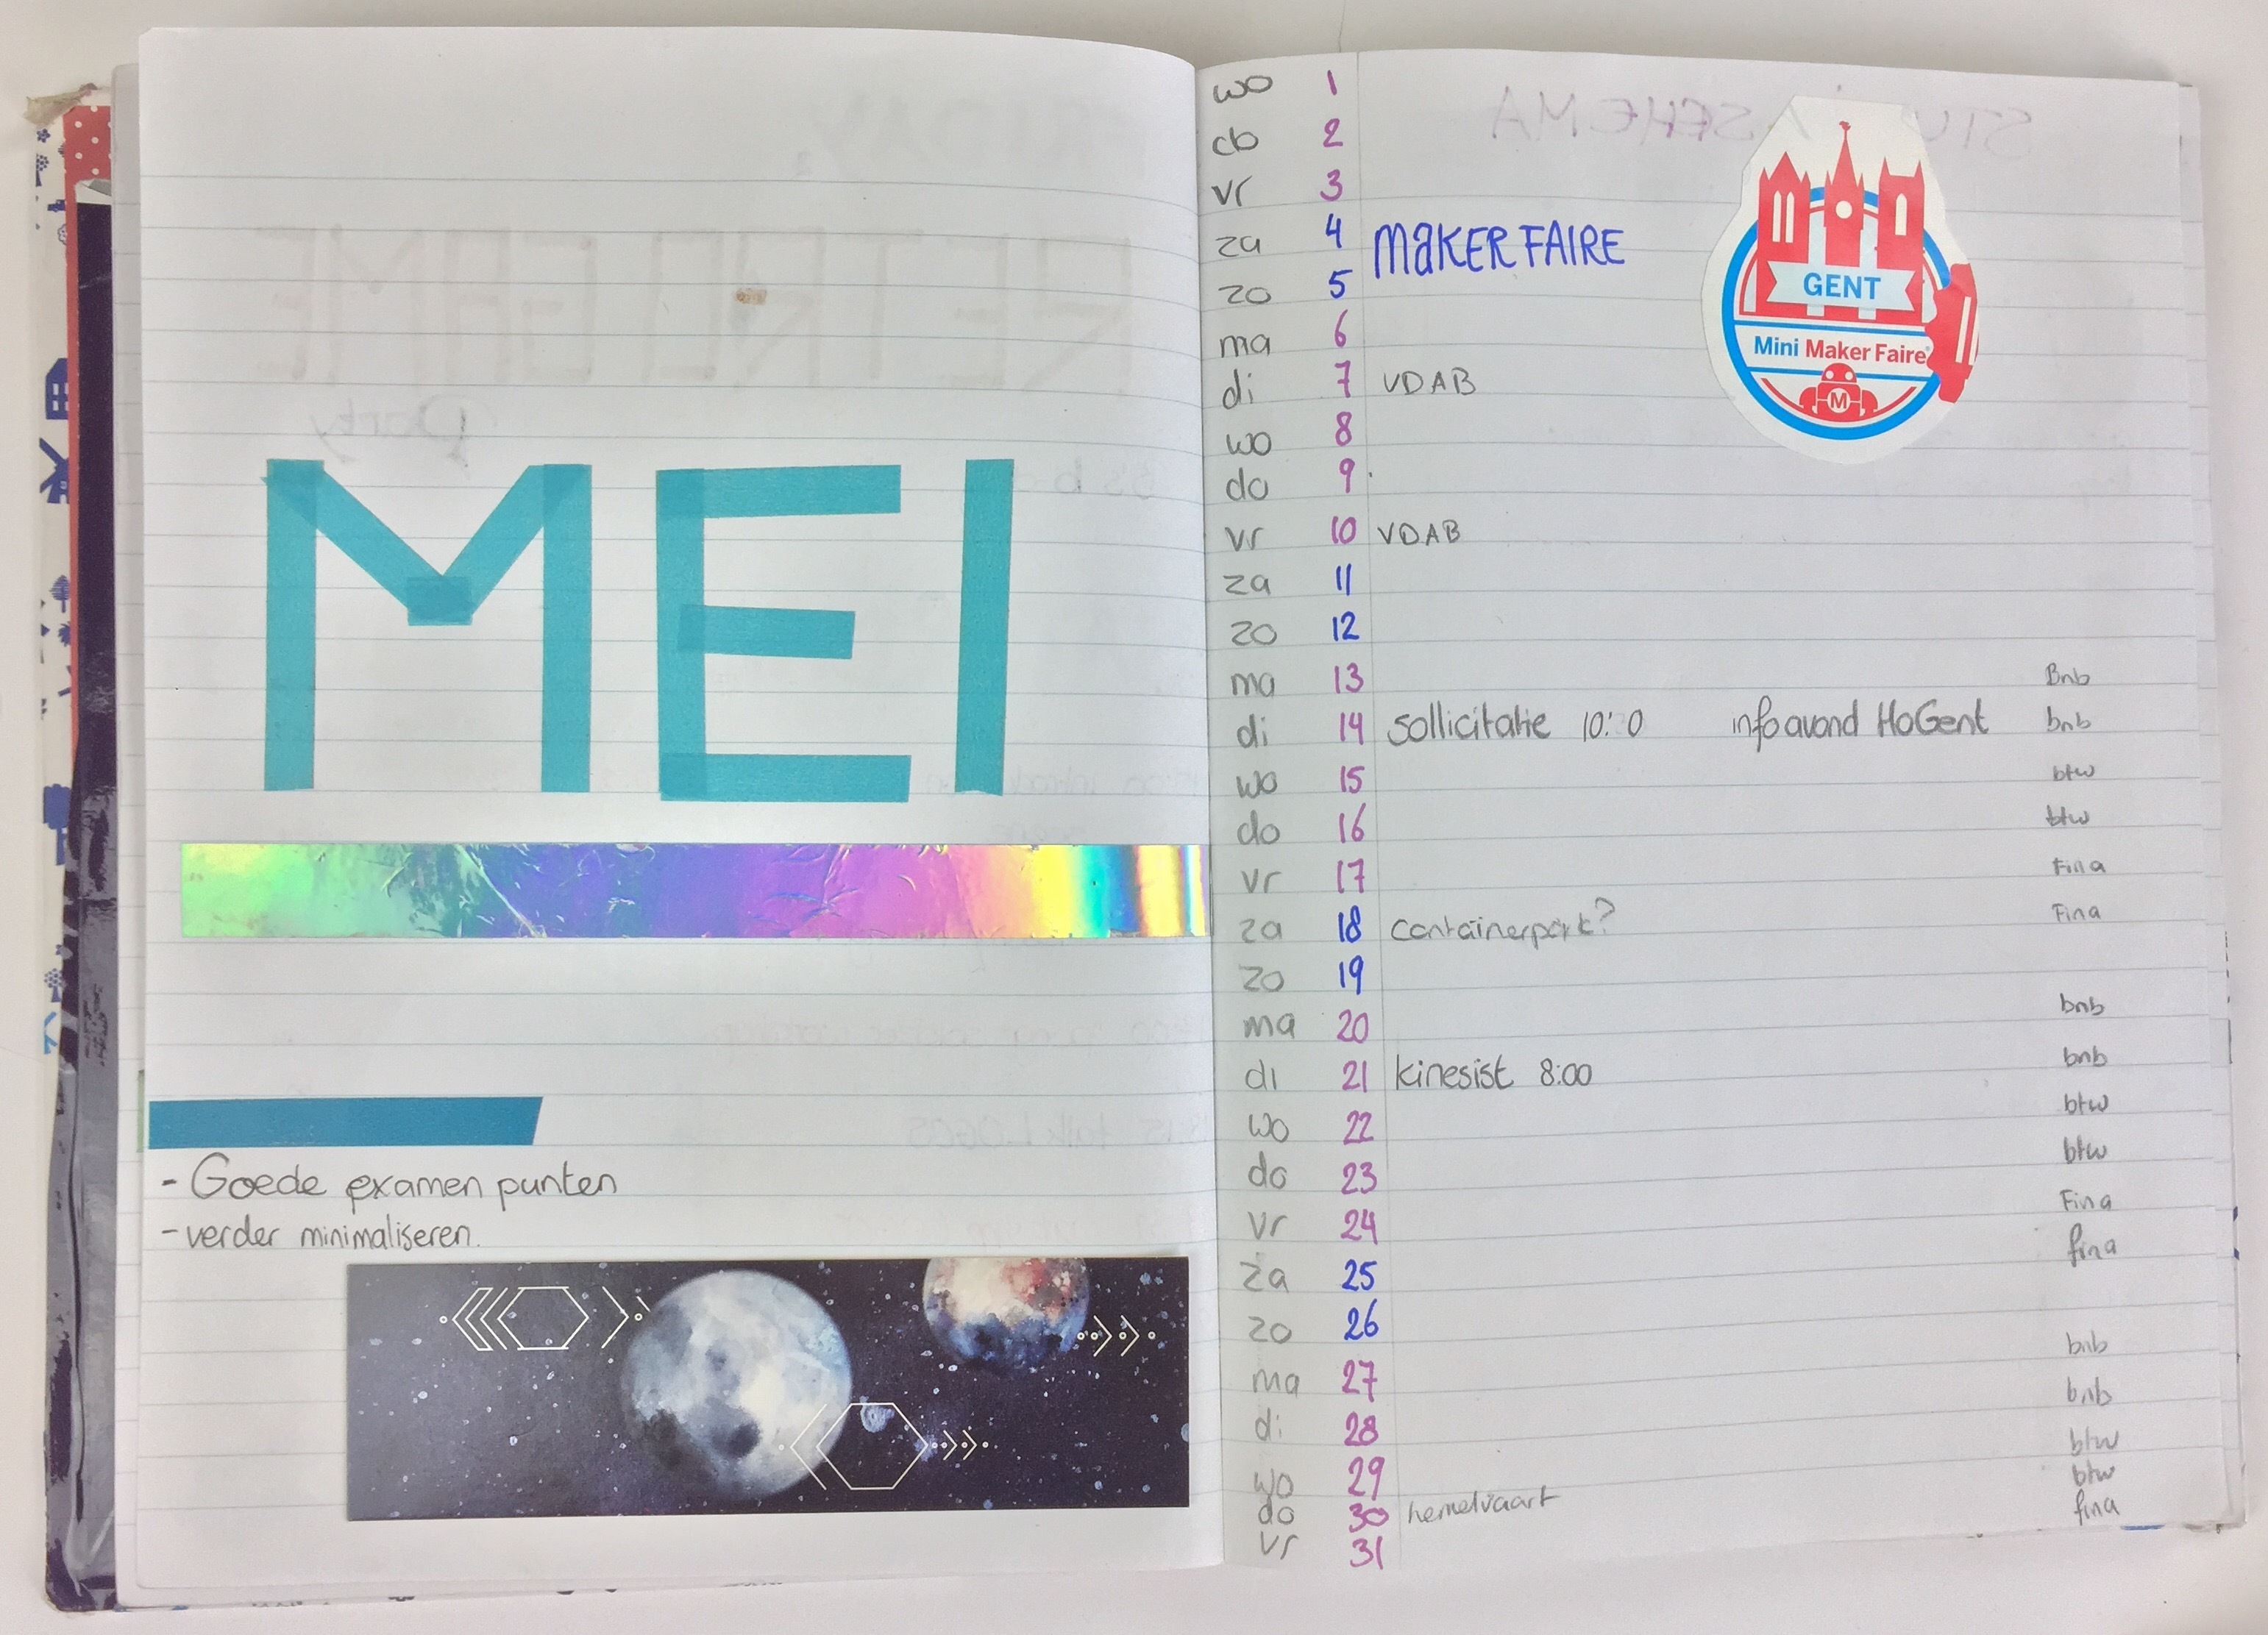 MEI
- Goede examen punten
- verder minimaliseren.
wo 1
do 2
vr 3
za 4 MAKER FAIRE
zo 5
ma 6
di 7 VDAB
wo 8
do 9
vr 10 VDAB
za 11
zo 12
ma 13 Bnb
di 14 sollicitatie 10:0 infoavond HoGent bnb
wo 15 btw
do 16 btw
vr 17 Fina
za 18 containerpark? Fina
zo 19
ma 20 bnb
di 21 kinesist 8:00 bnb
wo 22 btw
do 23 btw
vr 24 Fina
za 25 fina
zo 26
ma 27 bnb
di 28 bnb
wo 29 btw
btw
do 30 hemelvaart fina
vr 31
GENT
Mini Maker Faire
M